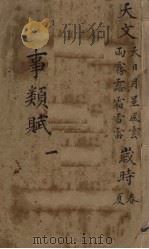 天文 天日月星風雲
雨霧露霜雪雷
歲時 春
夏
事類賦 一